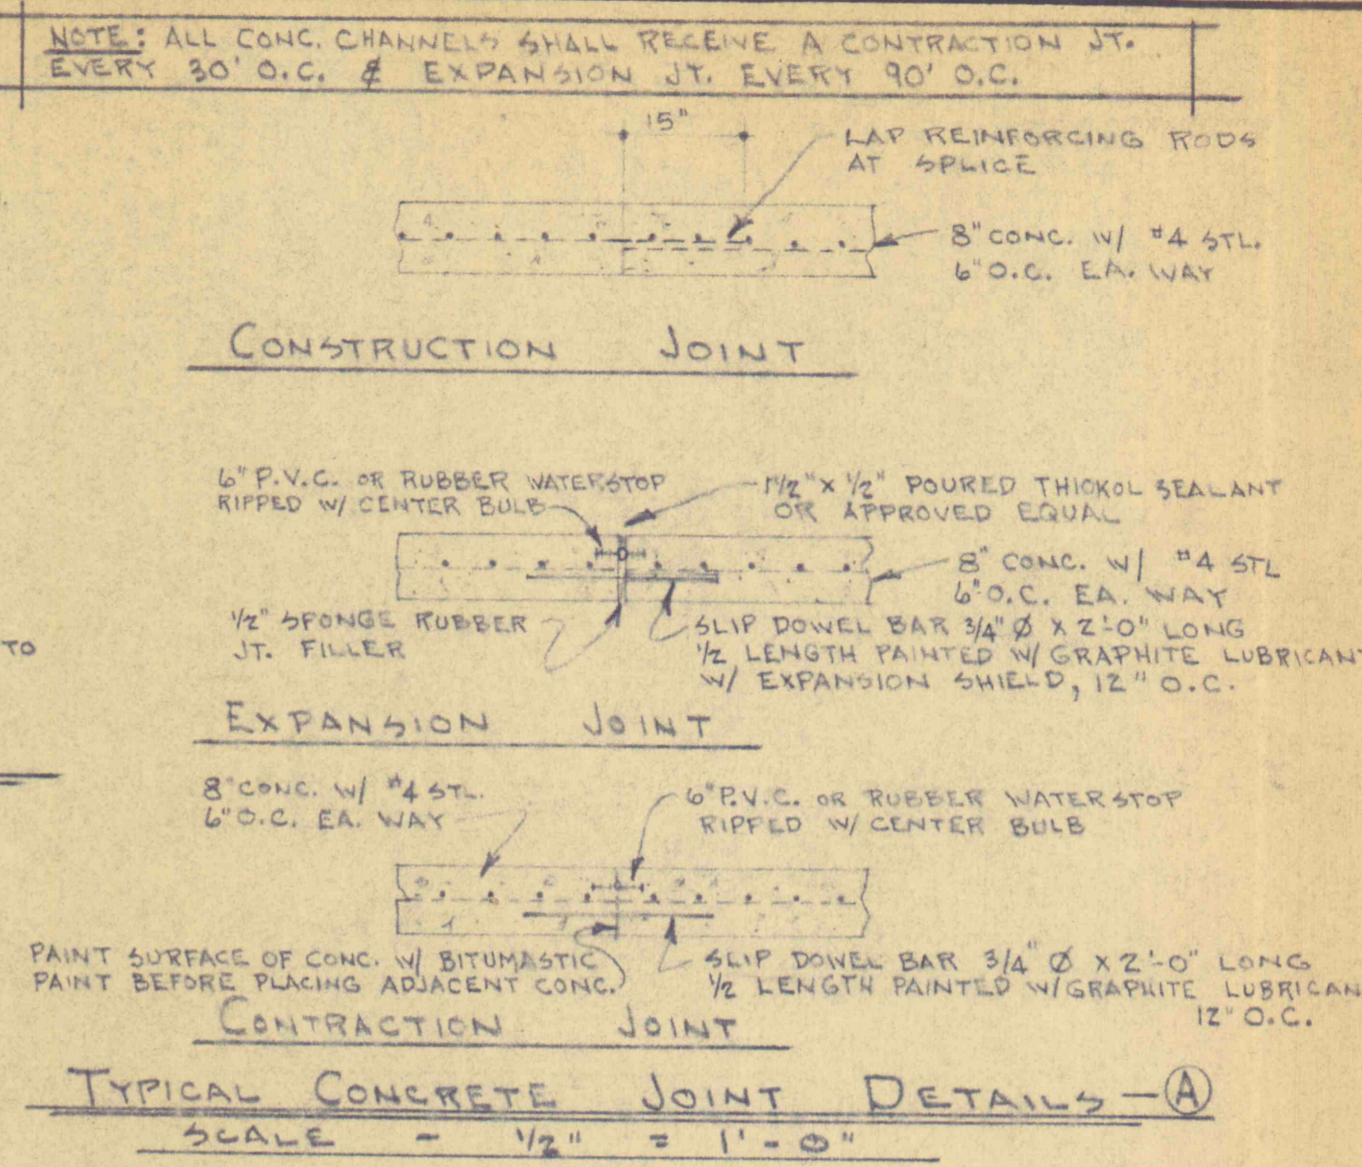 NOTE: ALL CONC. CHANNELS SHALL RECEIVE A CONTRACTION JT.
EVERY 30' O.C. & EXPANSION JT. EVERY 90' O.C.
15"
LAP REINFORCING RODS
AT SPLICE
8" CONC. W/ #4 STL.
6" O.C. EA. WAY
CONSTRUCTION JOINT
6" P.V.C. OR RUBBER WATERSTOP
RIPPED W/ CENTER BULB
1 1/2" X 1/2" POURED THIOKOL SEALANT
OR APPROVED EQUAL
8" CONC. W/ #4 STL
6" O.C. EA. WAY
1/2" SPONGE RUBBER
JT. FILLER
SLIP DOWEL BAR 3/4" Ø X 2'-0" LONG
1/2 LENGTH PAINTED W/ GRAPHITE LUBRICANT
W/ EXPANSION SHIELD, 12" O.C.
TO
EXPANSION JOINT
8" CONC. W/ #4 STL.
6" O.C. EA. WAY
6" P.V.C. OR RUBBER WATERSTOP
RIPPED W/ CENTER BULB
PAINT SURFACE OF CONC. W/ BITUMASTIC
PAINT BEFORE PLACING ADJACENT CONC.
SLIP DOWEL BAR 3/4" Ø X 2'-0" LONG
1/2 LENGTH PAINTED W/ GRAPHITE LUBRICAN
12" O.C.
CONTRACTION JOINT
TYPICAL CONCRETE JOINT DETAILS - A
SCALE - 1/2" = 1'-0"